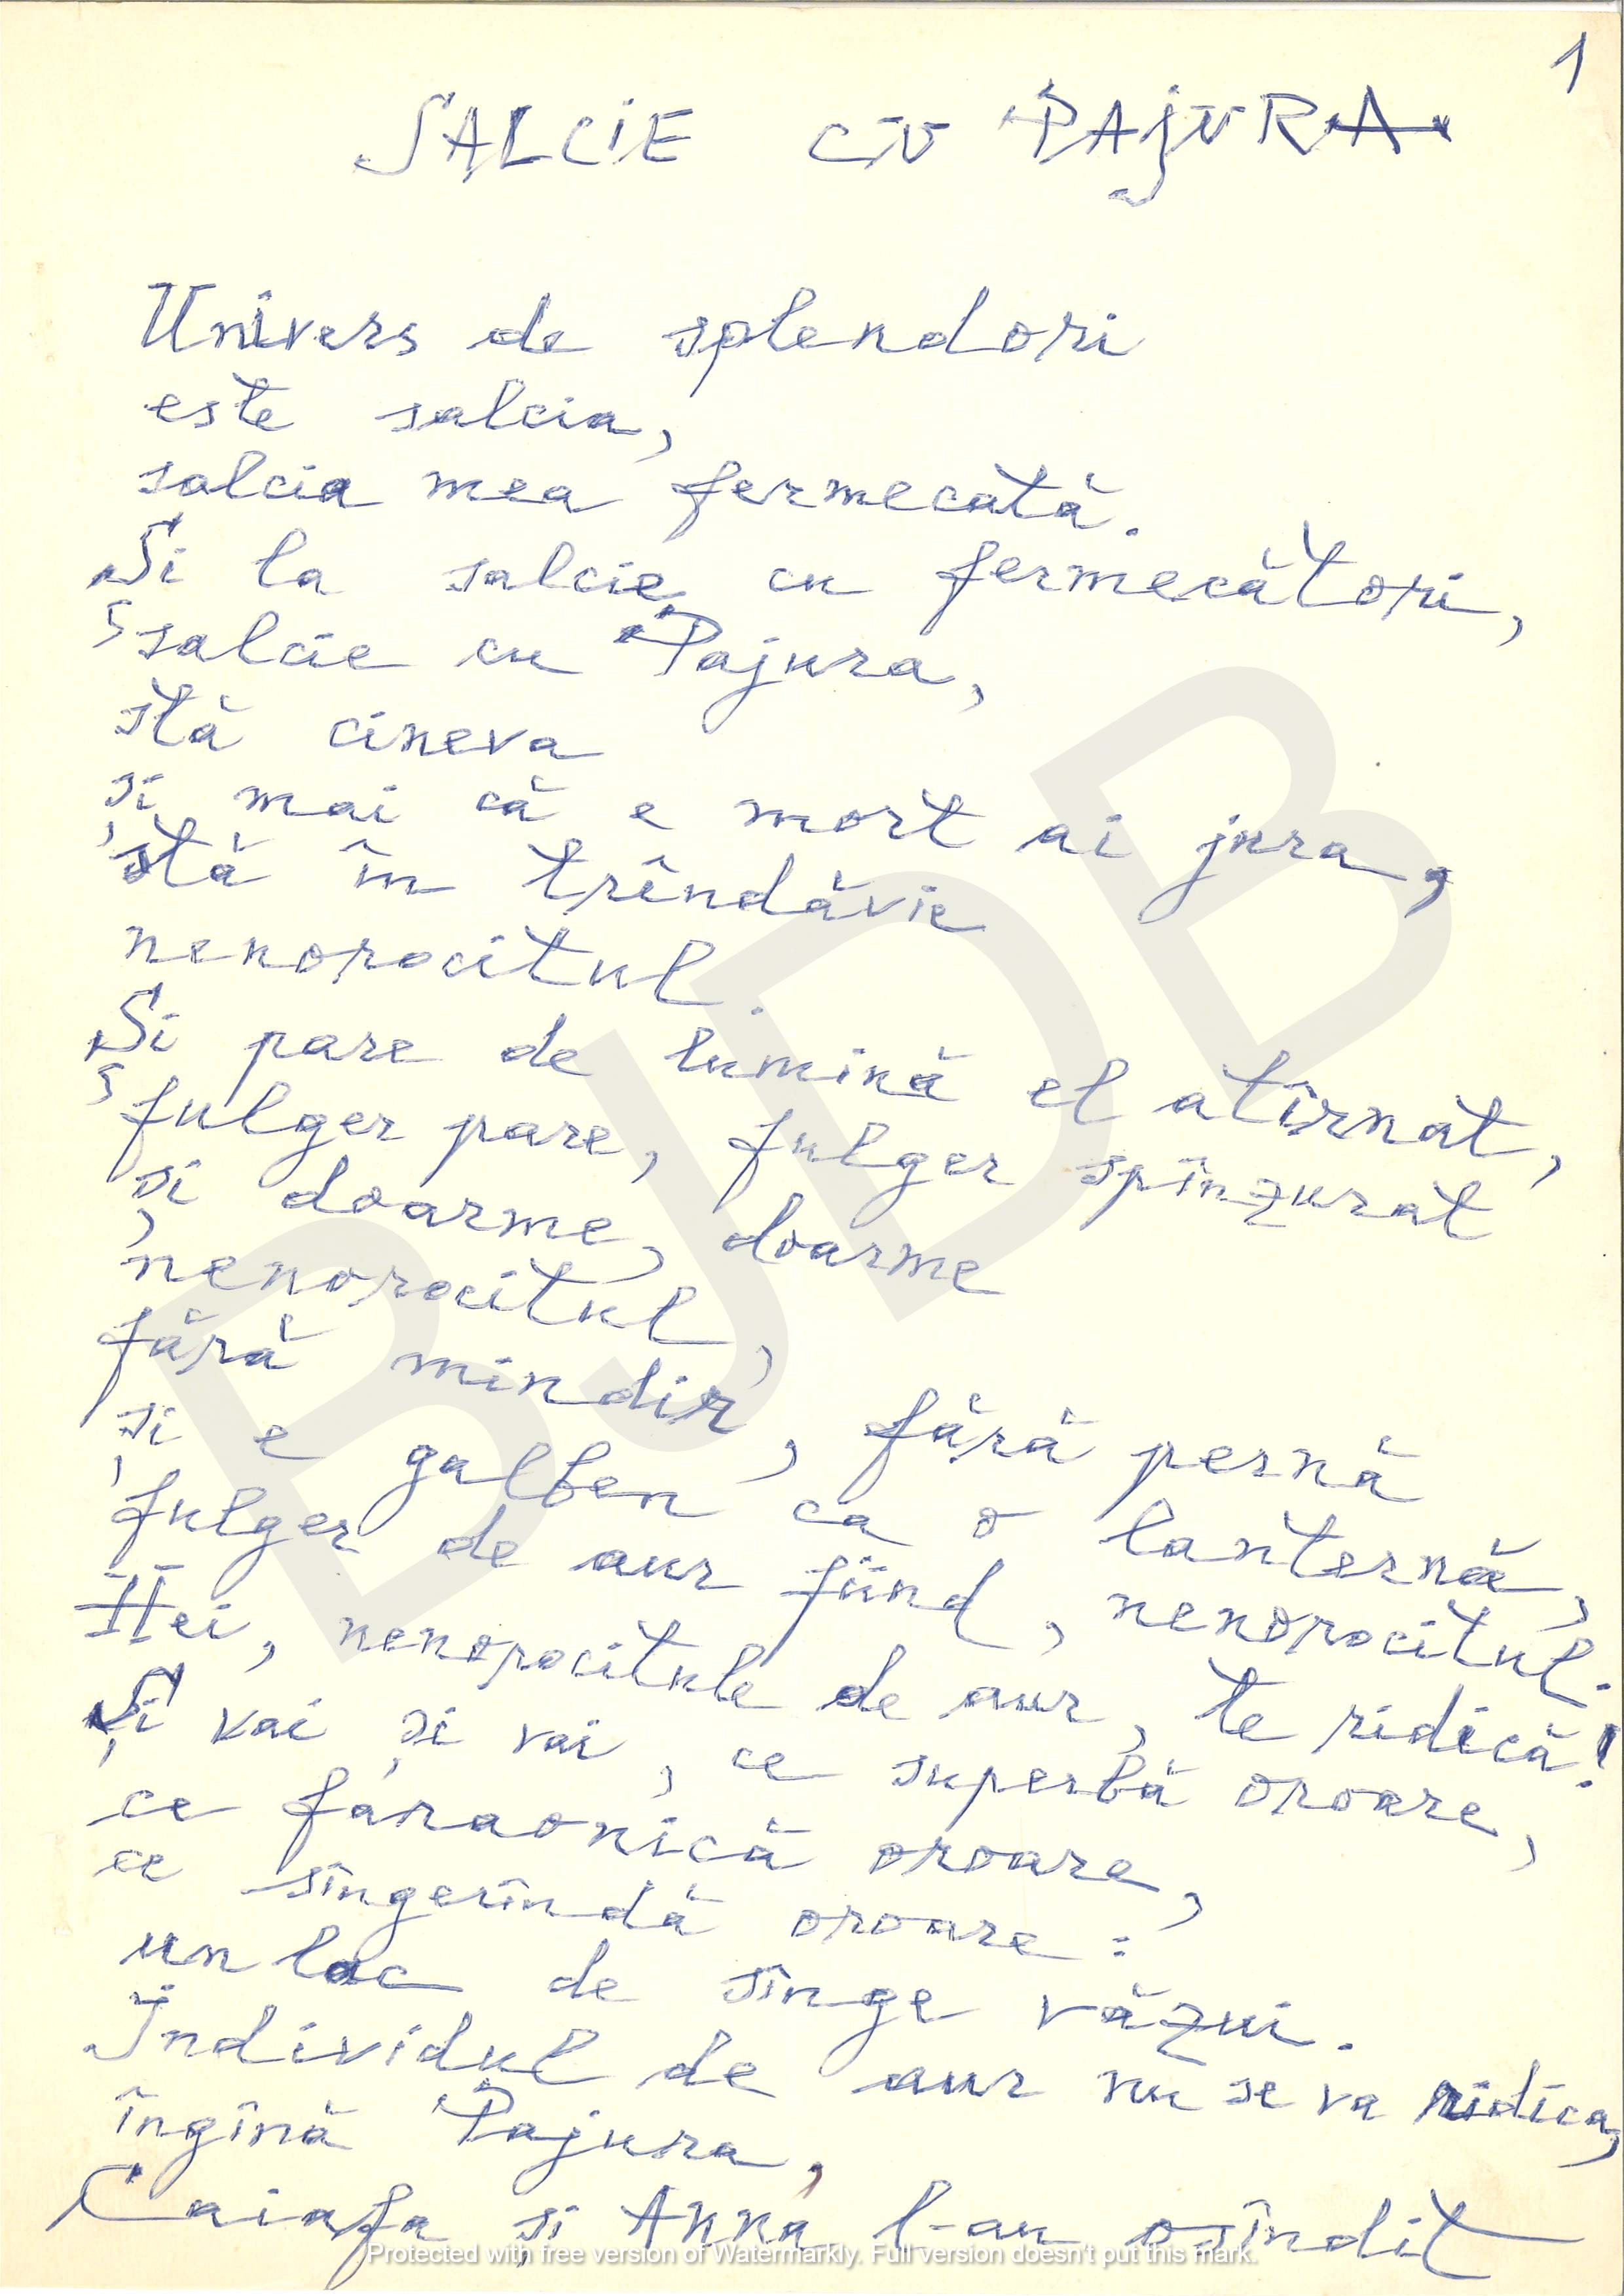 1
SALCIE CU PAJURA
Univers de splendori
este salcia,
salcia mea fermecată.
Și la salcie cu fermecători,
salcie cu Pajura,
stă cineva
și mai că e mort ai jura,
stă în trîndăvie
nenorocitul.
Și pare de lumină el atîrnat,
fulger pare, fulger spînzurat
și doarme, doarme
nenorocitul,
fără mindir, fără pernă
și e galben ca o lanternă,
fulger de aur fiind, nenorocitul.
Hei, nenorocitule de aur, te ridică!
Și vai și vai, ce superbă oroare,
ce faraonică oroare,
ce sîngerîndă oroare:
un lac de sînge văzui.
Individul de aur nu se va ridica,
îngînă Pajura,
Caiafa și Anna l-au osîndit
BJDB
Protected with free version of Watermarkly. Full version doesn't put this mark.